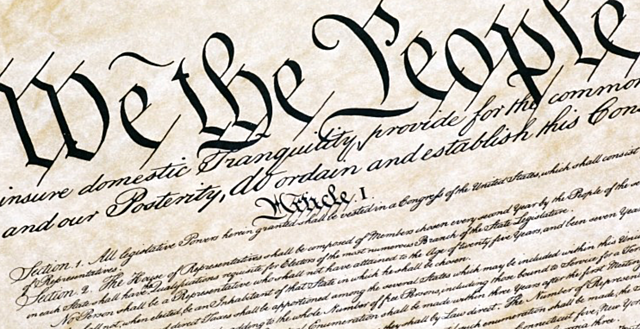 We the People
insure domestic Tranquility, provide for the common
and our Posterity, do ordain and establish this Con
Article. I.
Section. 1. All legislative Powers herein granted shall be vested in a Congress of the United States, which shall consist
of Representatives.
Section. 2. The House of Representatives shall be composed of Members chosen every second Year by the People of the
in each State shall have the Qualifications requisite for Electors of the most numerous Branch of the State Legislature.
No Person shall be a Representative who shall not have attained to the Age of twenty five Years, and been seven Years
shall not, when elected, be an Inhabitant of that State in which he shall be chosen.
direct Taxes shall be apportioned among the several States which may be included within this Union
adding to the whole Number of free Persons, including those bound to Service for a
Enumeration shall be made within three Years after the first
shall by Law direct. The Number of
enumeration shall be made, the
five, New York